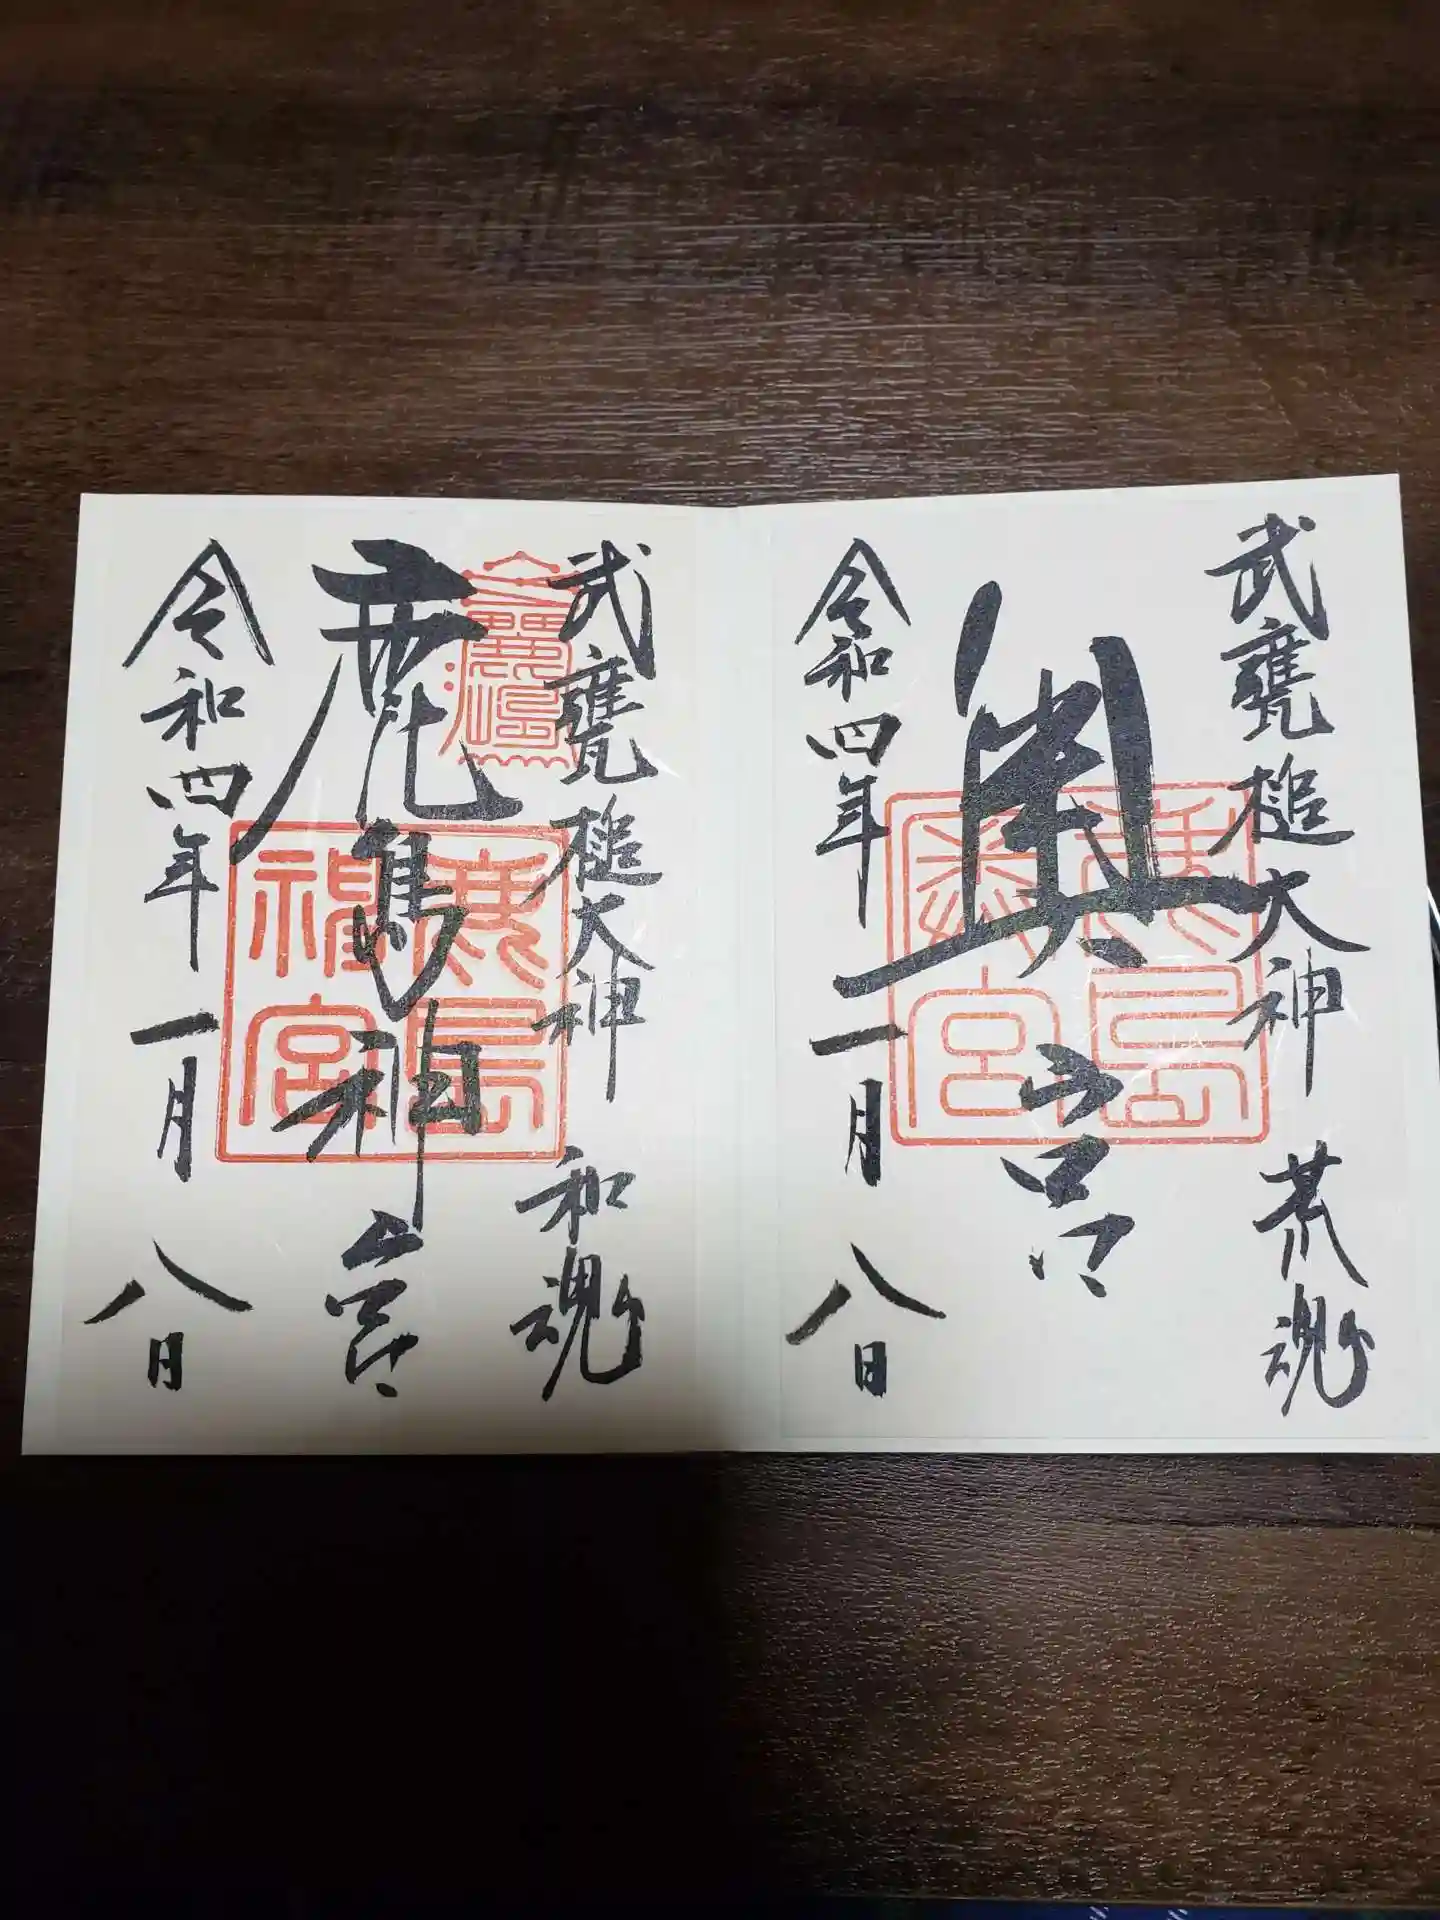 武甕槌大神 荒魂
奥宮
令和四年一月八日
武甕槌大神 和魂
鹿島神宮
令和四年一月八日
鹿島神宮